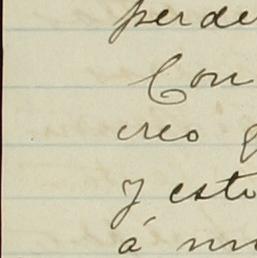 perde
Con
creo
y esto
á mi